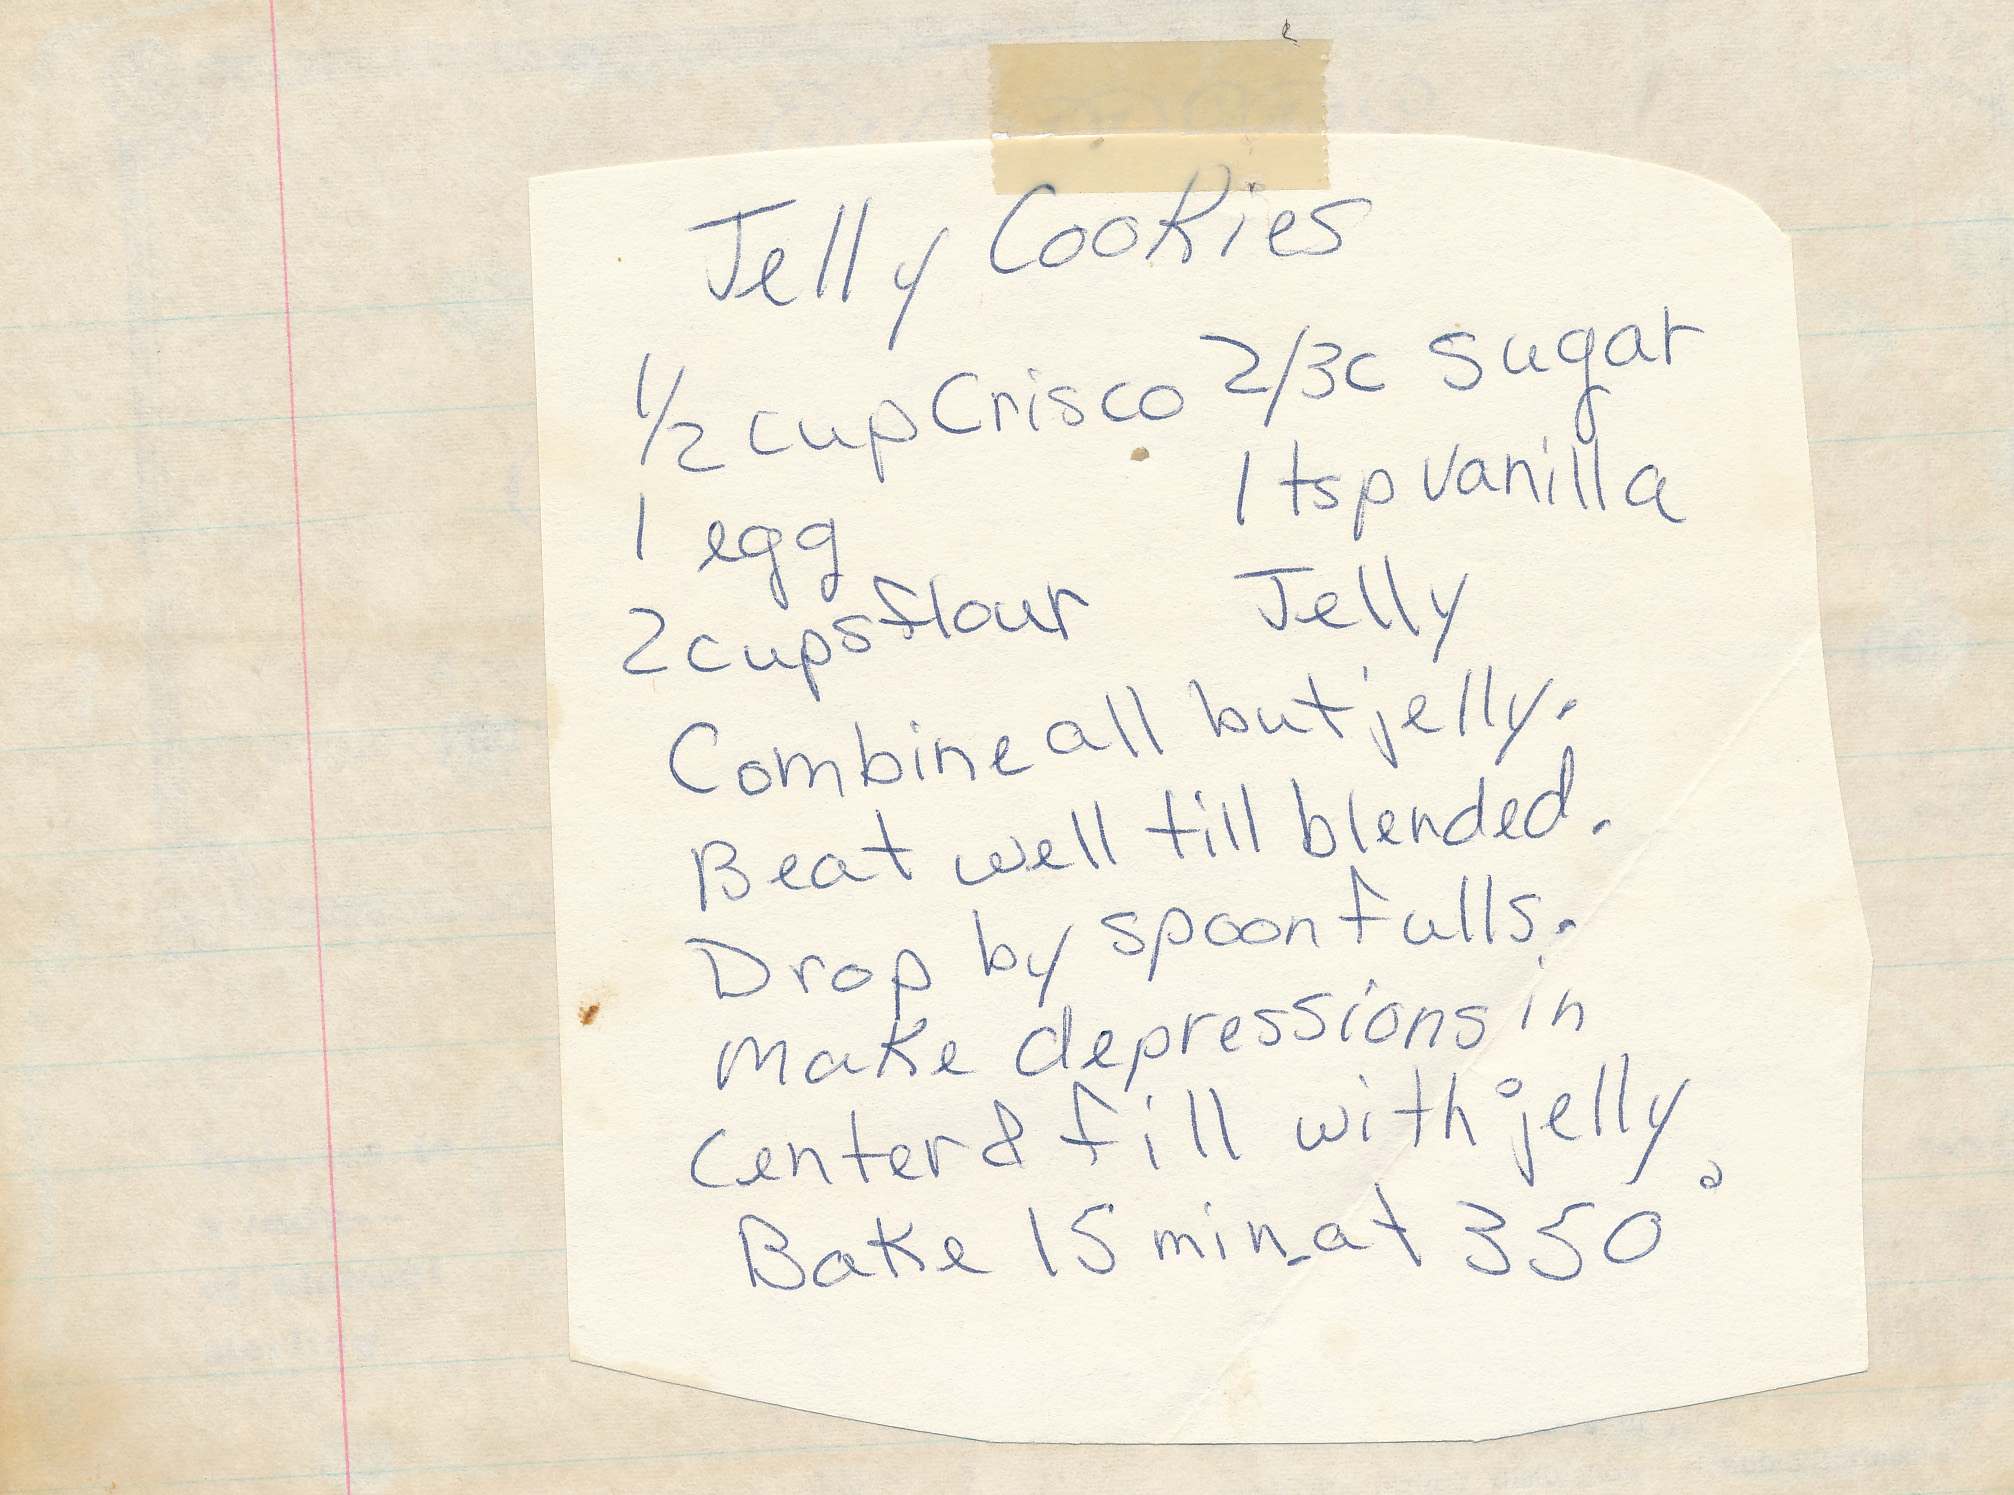 Jelly Cookies
1/2 cup Crisco 2/3c sugar
1 egg 1 tsp vanilla
2 cups flour Jelly
Combine all but jelly.
Beat well till blended.
Drop by spoonfulls.
Make depressions in
center & fill with jelly.
Bake 15 min. at 350°